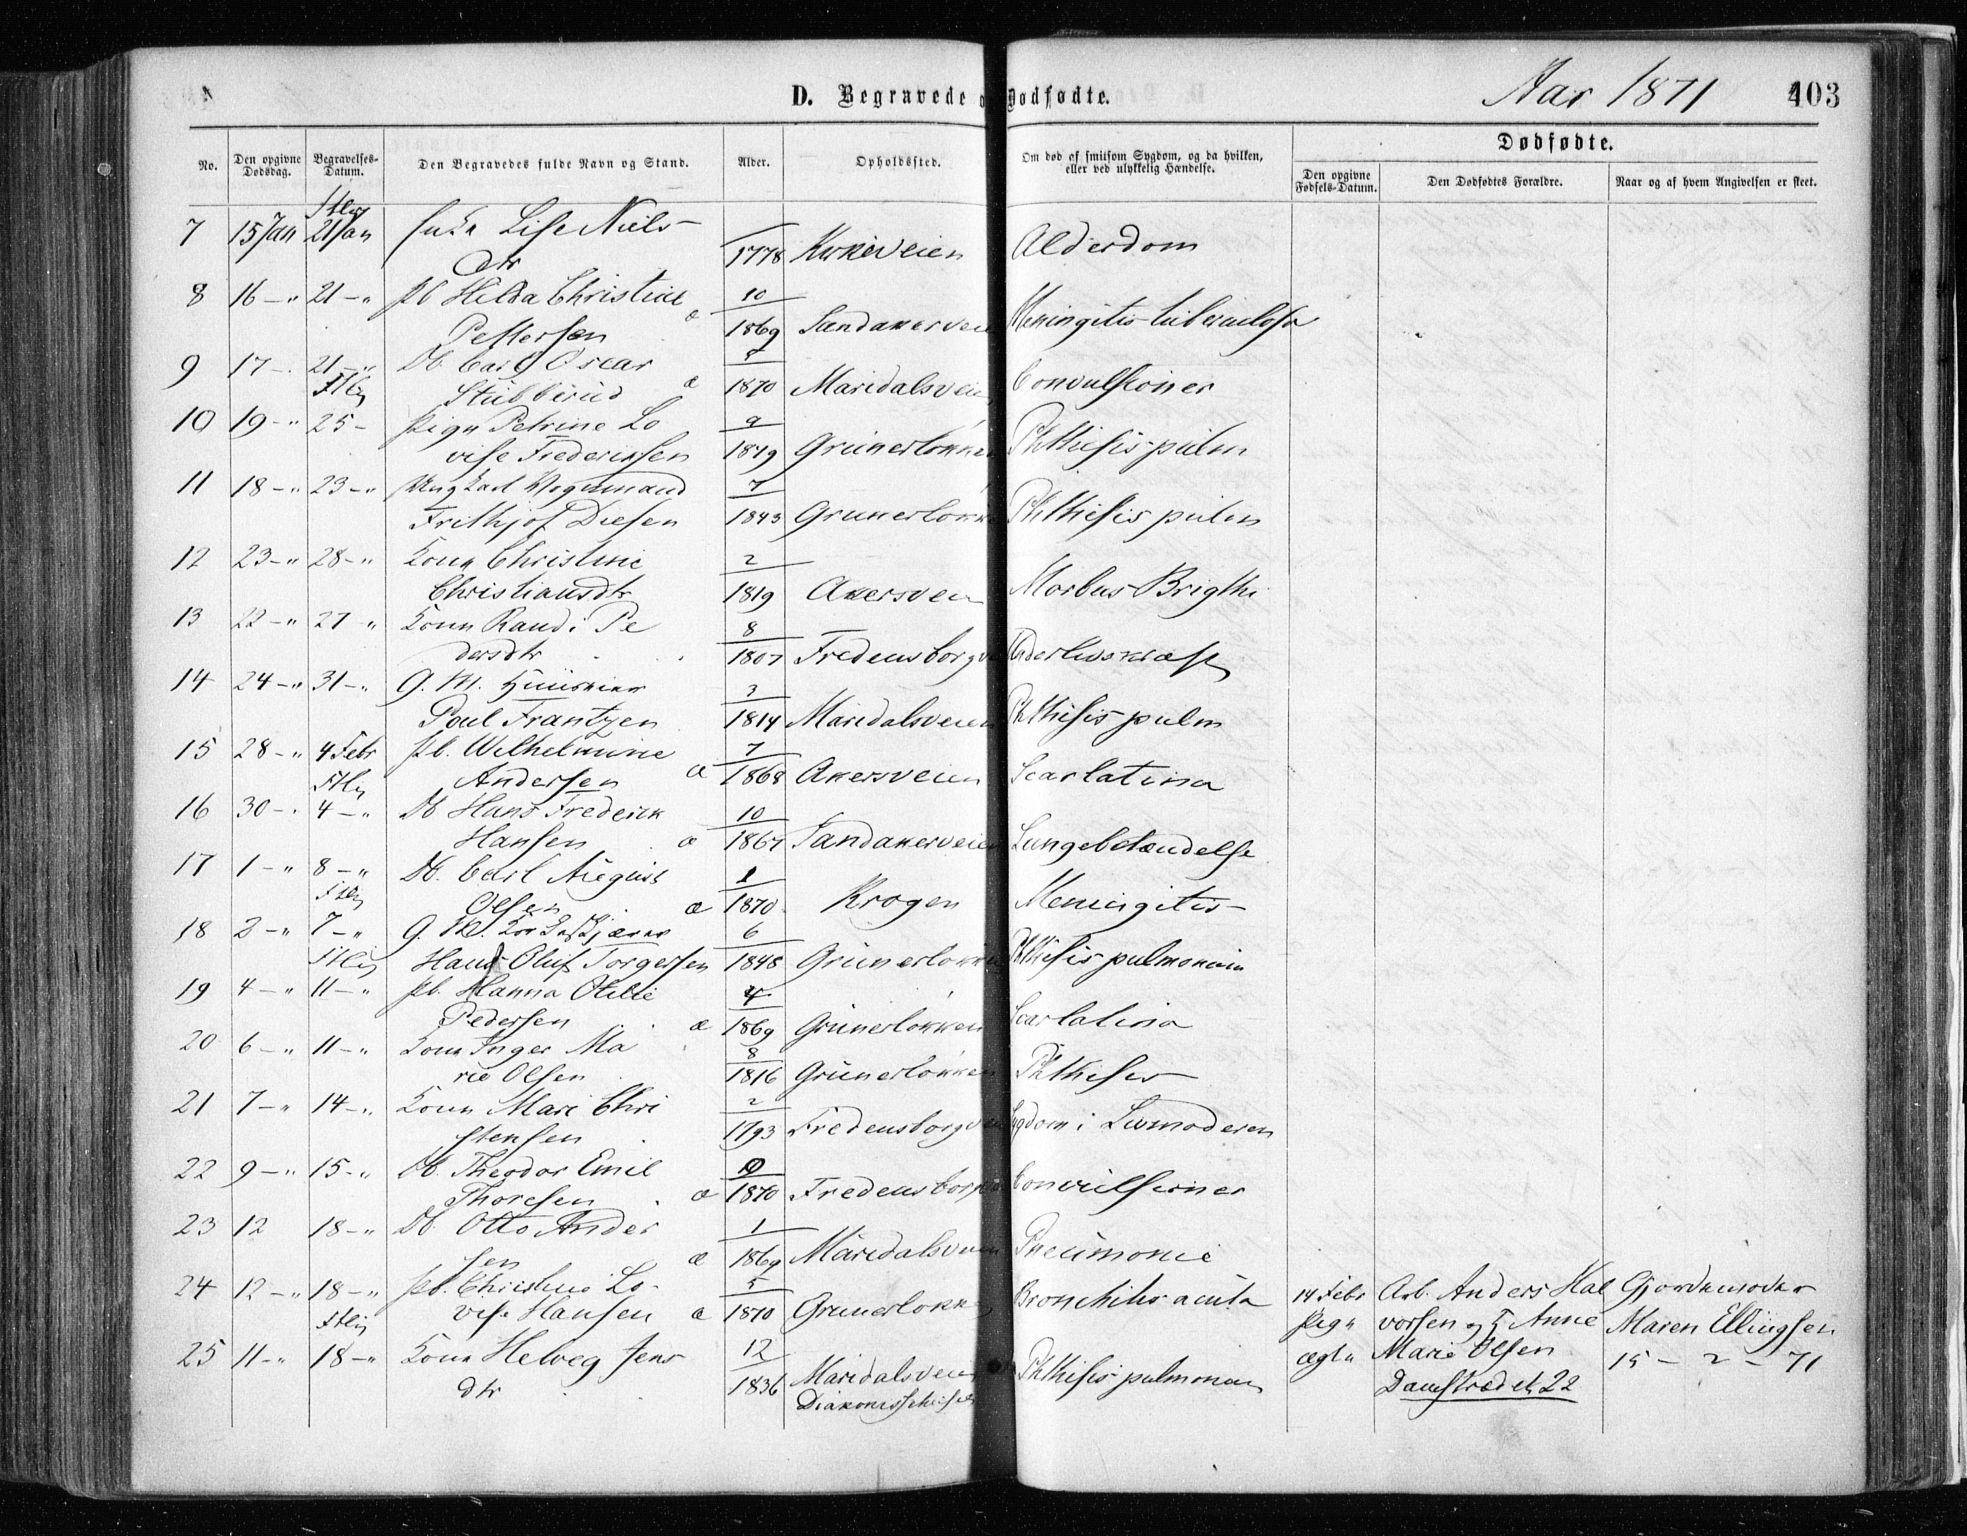 D. Begravede o Dødfødte.
Aar 1871
403
No.
Den opgivne Dødsdag.
Begravelses-Datum.
Den Begravedes fulde Navn og Stand.
Alder.
Opholdssted.
Om død af smitsom Sygdom, og da hvilken, eller ved ulykkelig Hændelse.
Dødfødte.
Den opgivne Fødsels-Datum.
Den Dødfødtes Forældre.
Naar og af hvem Angivelsen er skeet.
7 15 Jan 21 Jan Lise Niels-
dtr 1778 Kirkeveien Alderdom
8 16 - " 21 - " Pb Hilda Christine 10
Pettersen æ 1869 Sandakerveien Meningitis tuberculosa
9 17 - 21 - " Db. Carl Oscar
Stubberud æ 1870 Maridalsveien Convulsioner
10 19 - " 25 - Pige Petrine Lo 9
vise Fredriksen 1849 Grünerløkken Phthisis pulm
11 18 - " 23 - " Ungkarl Vognmand 7
Frithjof Diesen 1843 Grunerløkken Phthisis pulm
12 23 - " 28 - " Kone Christine 2
Christiansdtr 1819 Akersveien Morbus Brigthi
13 22 - " 27 " Kone Randi Pe 8
dersdtr 1807 Fredensborgvei
14 24 - " 31 - " G. M. 3
Poul Frantzen 1814 Maridalsveien Phthisis pulm
15 28 - " 4 Febr Pb. Wilhelmine 7
Andersen æ 1868 Akersveien Scarlatina
16 30 - 4 - " Db Hans Frederik 10
Hansen æ 1867 Sandakerveien Lungebetændelse
17 1 - " 8 - " Db. Carl August 1
Olsen æ 1870 Krogen Meningitis
18 2 - " 7 - " G. M. 6
Hans Oluf Torgersen 1848 Grünerløkken Phthisis pulmonum
19 4 - " 11 - " Pb. Hanna Otilie 4
Pedersen æ 1869 Grünerløkken Scarlatina
20 6 - " 11 - " Kone Inger Ma 8
rie Olsen 1816 Grünerløkken Phthisis
21 7 - " 14 - " Kone Mari Chri 2
stensen 1793 Fredensborgvei Sygdom i Livmoderen
22 9 - " 15 - " Db. Theodor Emil
Thoresen æ 1870 Fredensborgvei Convulsioner
23 12 18 - " Db. Otto Ander 1
sen æ 1869 Maridalsveien Pneumonie
24 12 - " 18 - " Pb. Christine Lo- 5
vise Hansen æ 1870 Grunerløkken Bronchitis acuta
14 Febr Arb. Anders Hal Gjordemoder
Pige vorsen og Anne Maren Ellingsen
ægte Marie Olsen 15 - 2 - 71
Damstrædet 22
25 11 - " 18 - " Kone Helveg Jens 12
dtr 1836 Maridalsveien Phthisis pulmonum